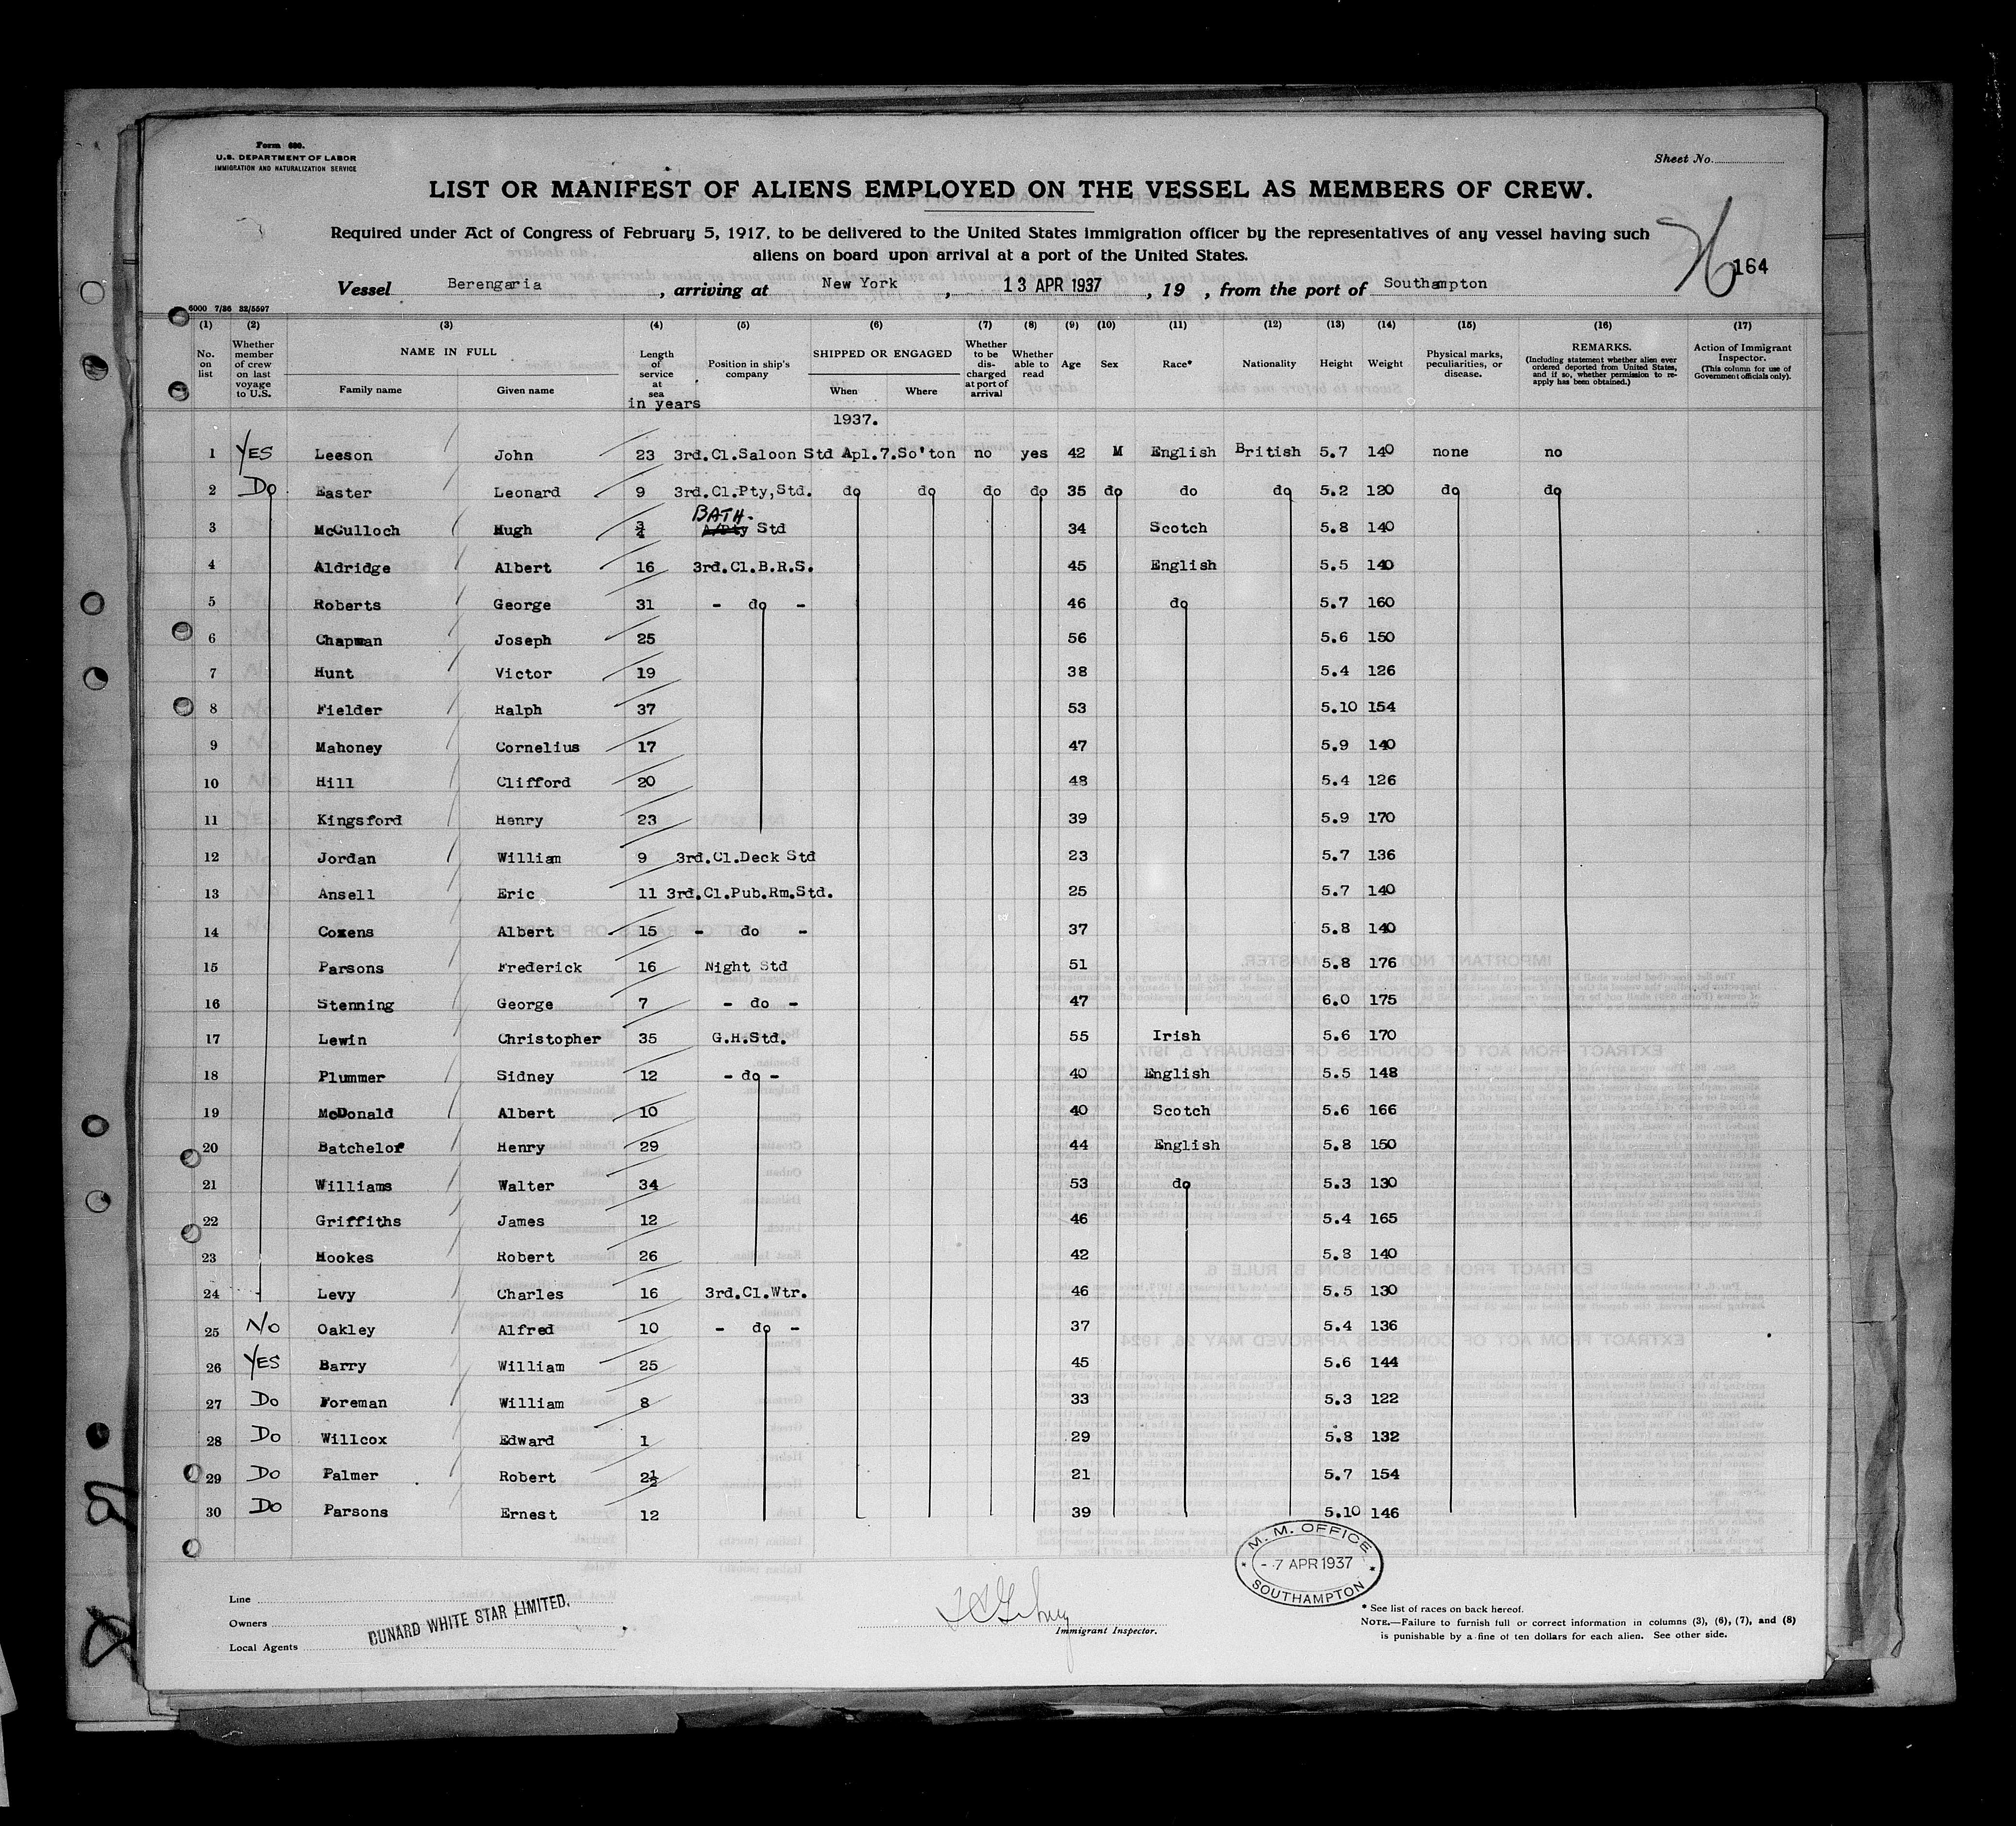 Form 680.
U.S. DEPARTMENT OF LABOR
IMMIGRATION AND NATURALIZATION SERVICE
Sheet No.
LIST OR MANIFEST OF ALIENS EMPLOYED ON THE VESSEL AS MEMBERS OF CREW.
Required under Act of Congress of February 5, 1917, to be delivered to the United States immigration officer by the representatives of any vessel having such
aliens on board upon arrival at a port of the United States.
164
Vessel Berengaria, arriving at New York, 13 APR 1937, 19 , from the port of Southampton
6000 7/36 32/5597
(1) (2) (3) (4) (5) (6) (7) (8) (9) (10) (11) (12) (13) (14) (15) (16) (17)
No. on list
Whether member of crew on last voyage to U.S.
NAME IN FULL
Family name Given name
Length of service at sea
in years
Position in ship's company
SHIPPED OR ENGAGED
When Where
Whether to be discharged at port of arrival
Whether able to read
Age Sex Race* Nationality Height Weight
Physical marks, peculiarities, or disease.
REMARKS.
(Including statement whether alien ever ordered deported from United States, and if so, whether permission to re-apply has been obtained.)
Action of Immigrant Inspector.
(This column for use of Government officials only).
1937.
1 YES Leeson John 23 3rd.Cl.Saloon Std Apl.7.So'ton no yes 42 M English British 5.7 140 none no
2 Do Easter Leonard 9 3rd.Cl.Pty,Std. do do do do 35 do do do 5.2 120 do do
BATH-
3 McCulloch Hugh 3/4 Std 34 Scotch 5.8 140
4 Aldridge Albert 16 3rd.Cl.B.R.S. 45 English 5.5 140
5 Roberts George 31 - do - 46 do 5.7 160
6 Chapman Joseph 25 56 5.6 150
7 Hunt Victor 19 38 5.4 126
8 Fielder Ralph 37 53 5.10 154
9 Mahoney Cornelius 17 47 5.9 140
10 Hill Clifford 20 48 5.4 126
11 Kingsford Henry 23 39 5.9 170
12 Jordan William 9 3rd.Cl.Deck Std 23 5.7 136
13 Ansell Eric 11 3rd.Cl.Pub.Rm.Std. 25 5.7 140
14 Coxens Albert 15 - do - 37 5.8 140
15 Parsons Frederick 16 Night Std 51 5.8 176
16 Stenning George 7 - do - 47 6.0 175
17 Lewin Christopher 35 G.H.Std. 55 Irish 5.6 170
18 Plummer Sidney 12 - do - 40 English 5.5 148
19 McDonald Albert 10 40 Scotch 5.6 166
20 Batchelor Henry 29 44 English 5.8 150
21 Williams Walter 34 53 do 5.3 130
22 Griffiths James 12 46 5.4 165
23 Hookes Robert 26 42 5.8 140
24 Levy Charles 16 3rd.Cl.Wtr. 46 5.5 130
25 No Oakley Alfred 10 - do - 37 5.4 136
26 YES Barry William 25 45 5.6 144
27 Do Foreman William 8 33 5.3 122
28 Do Willcox Edward 1 29 5.8 132
29 Do Palmer Robert 2½ 21 5.7 154
30 Do Parsons Ernest 12 39 5.10 146
M. M. OFFICE
- 7 APR 1937
SOUTHAMPTON
Line
Owners
Local Agents
CUNARD WHITE STAR LIMITED.
Immigrant Inspector.
* See list of races on back hereof.
NOTE.—Failure to furnish full or correct information in columns (3), (6), (7), and (8)
is punishable by a fine of ten dollars for each alien. See other side.